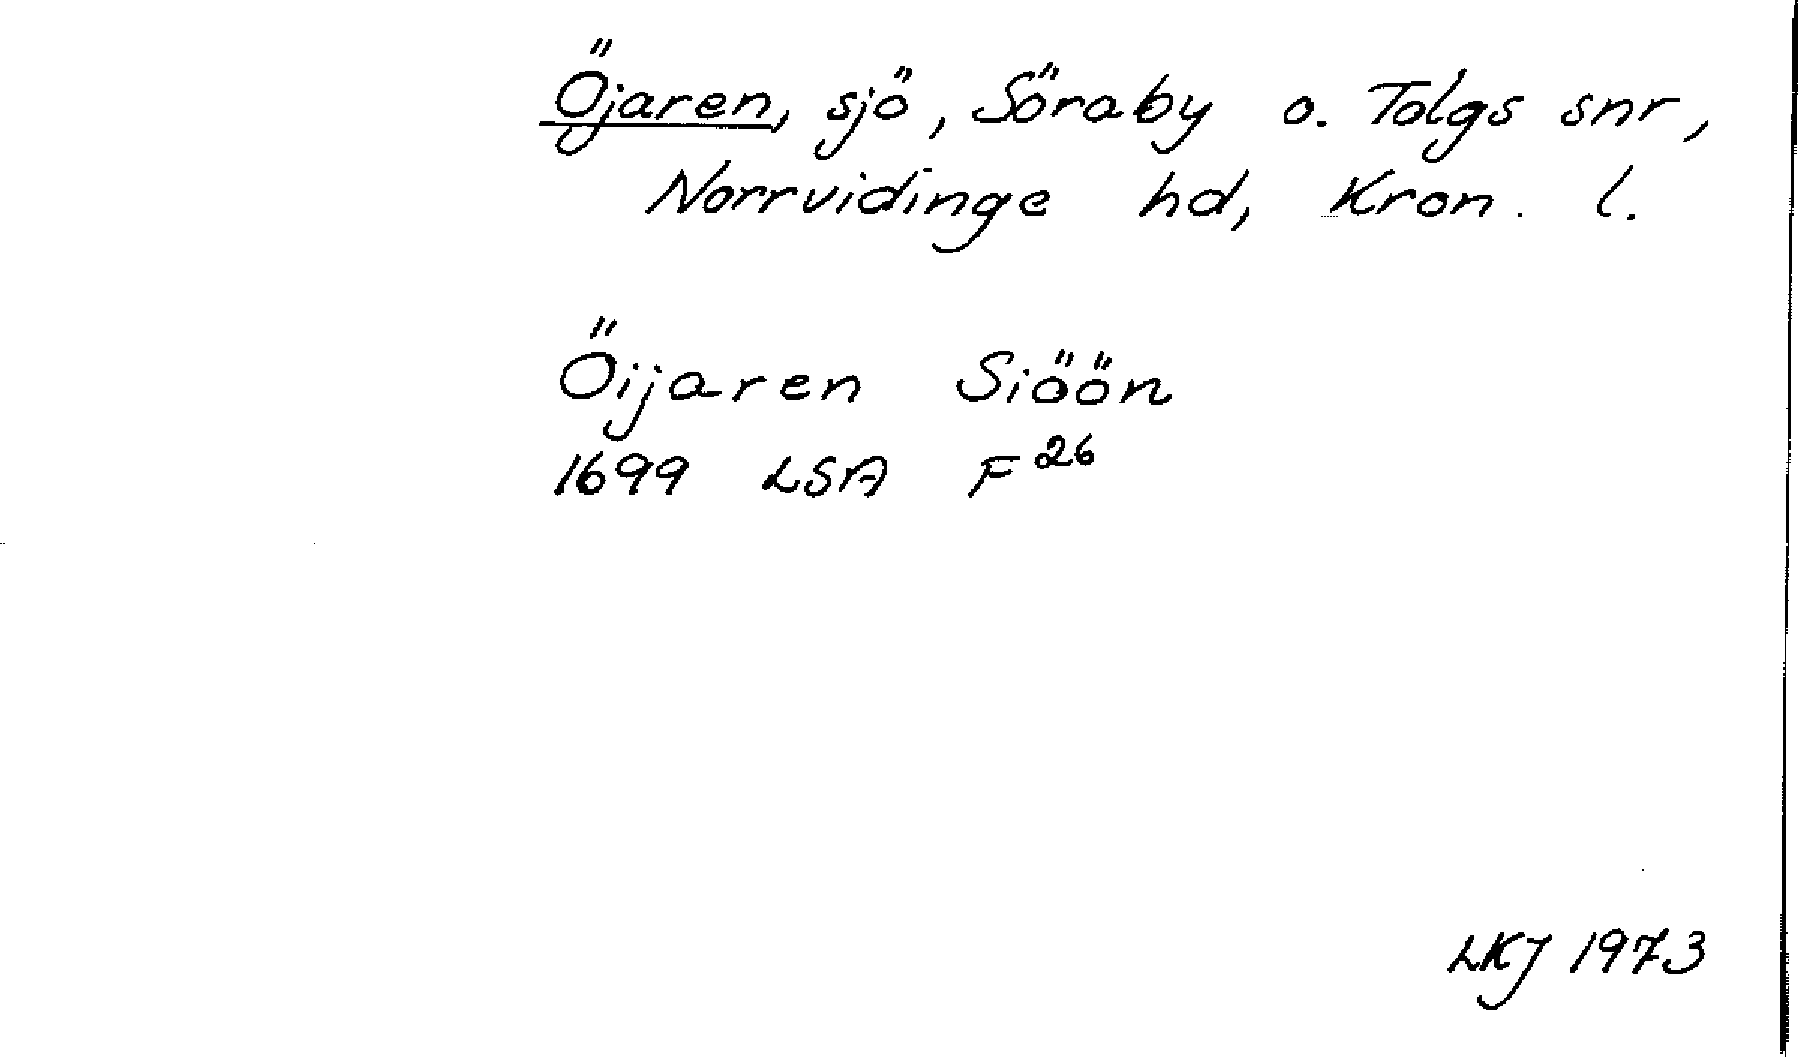 Öjaren, sjö, Söraby o. Tolgs snr,
Norrvidinge hd, Kron. l.
Öijaren Siöön
1699 LSA F 26
LKJ 1973